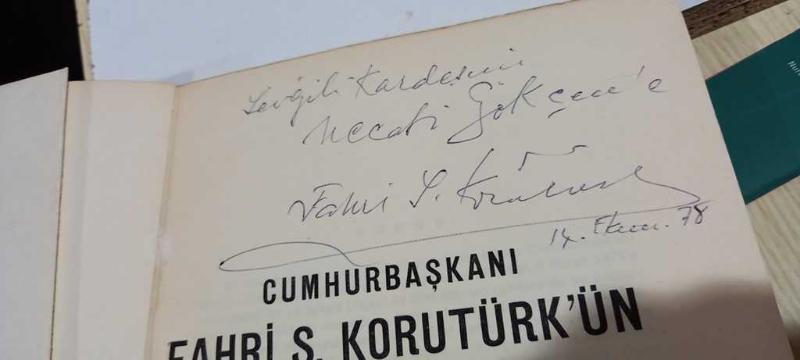 Sevgili Kardeşim
Necati Gökçen'e
Fahri S. Korutürk
14. Ekim. 78
CUMHURBAŞKANI
FAHRİ S. KORUTÜRK'ÜN